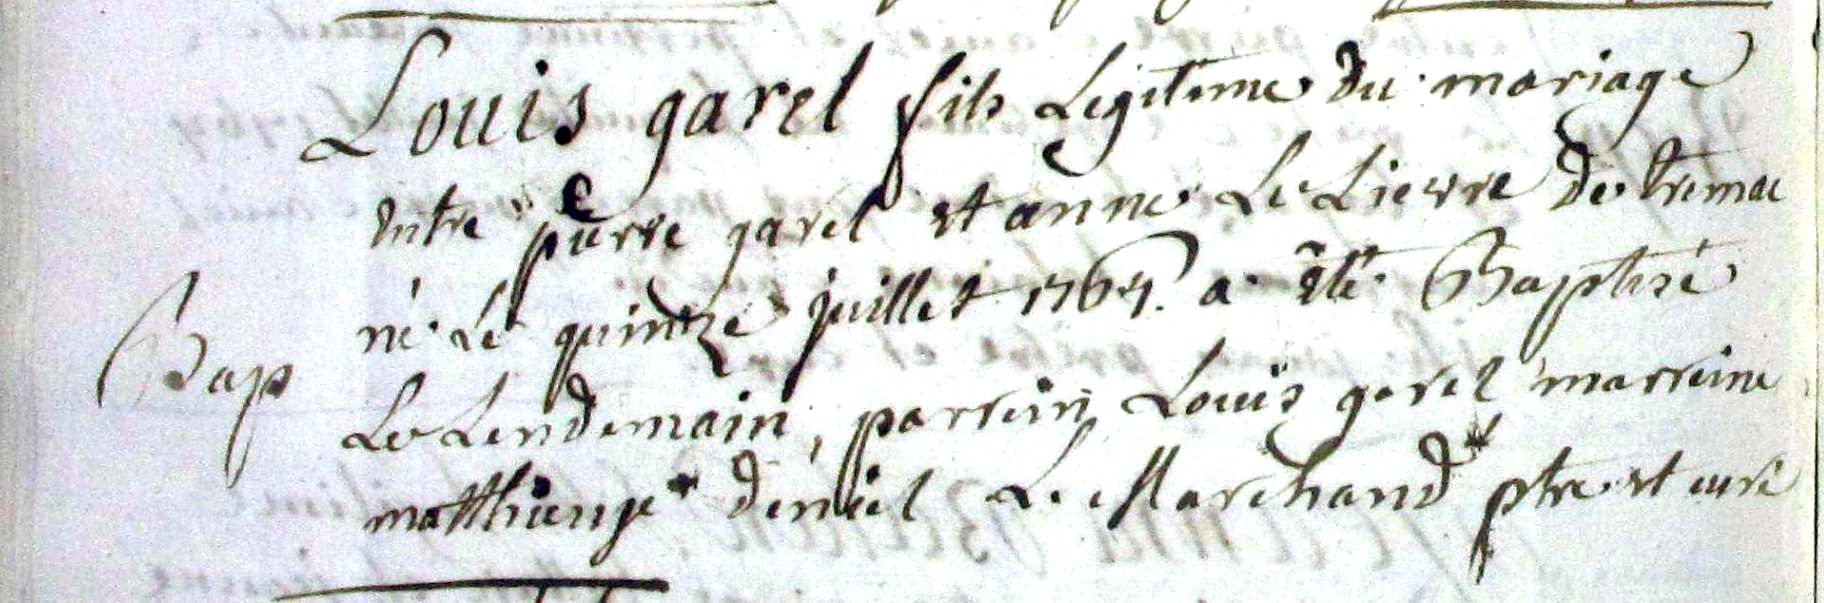 Louis garel fils Legitime du mariage
entre pierre garel et anne Le Lievre de tremac
né Le quinze juillet 1764. a été Baptisé
Bap
Le Lendemain, parrein Louis garel marreine
matthurine deniel Le Marchand ptre et curé